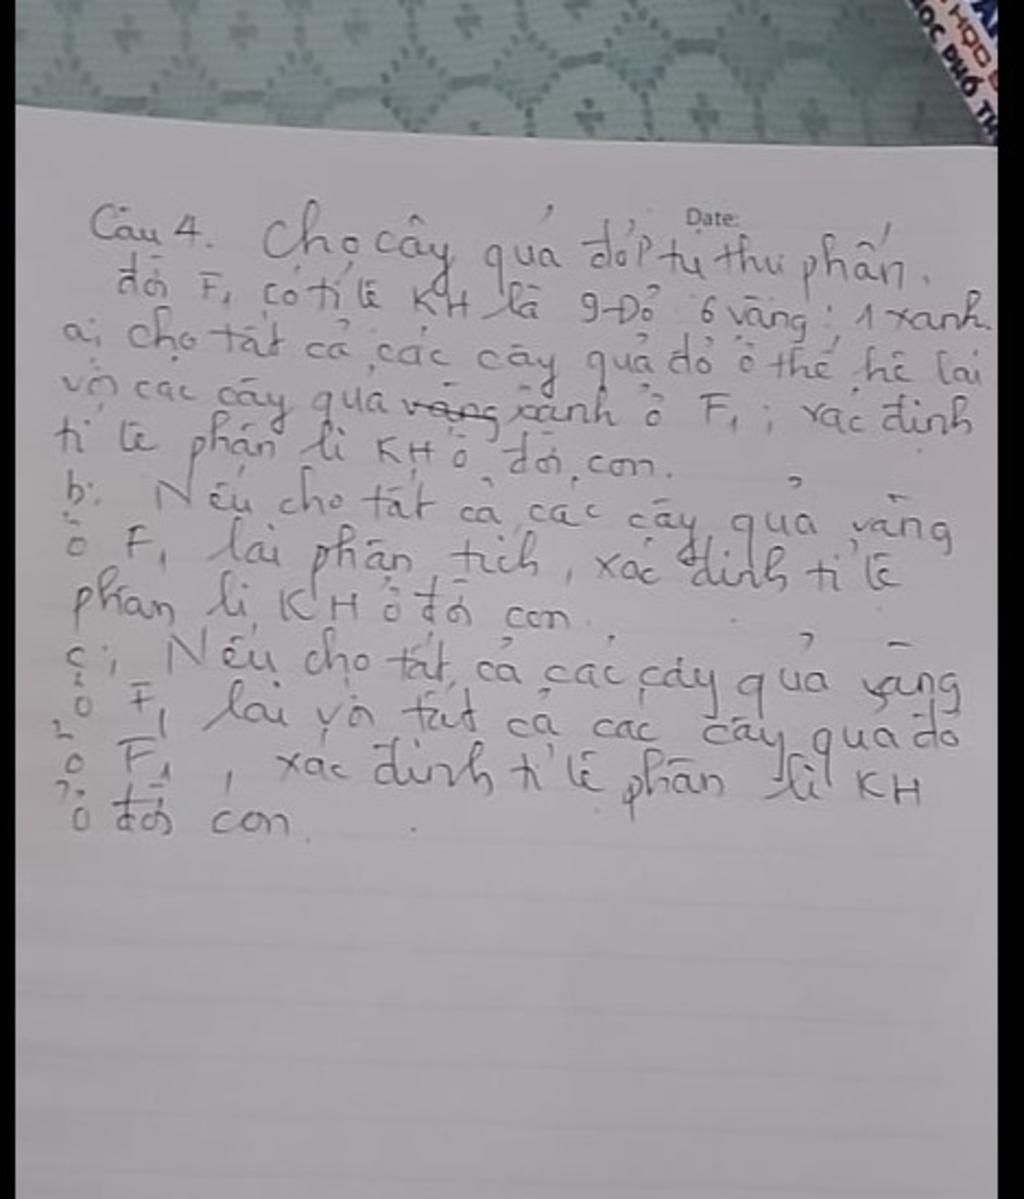 HỌC
HỌC PHỔ TH
Date:
Câu 4. Cho cây quả đỏ P tự thụ phấn.
đời F₁ có tỉ lệ KH là 9 Đỏ 6 vàng: 1 xanh.
a, cho tất cả các cây quả đỏ ở thế hệ lai
với các cây quả xanh ở F₁; xác định
tỉ lệ phân li KH ở đời con.
b: Nếu cho tất cả các cây quả vàng
ở F₁ lai phân tích, xác định tỉ lệ
phân li KH ở đời con.
c; Nếu cho tất cả các cây quả vàng
ở F₁ lai với tất cả các cây quả đỏ
ở F₁, xác định tỉ lệ phân li KH
ở đời con.